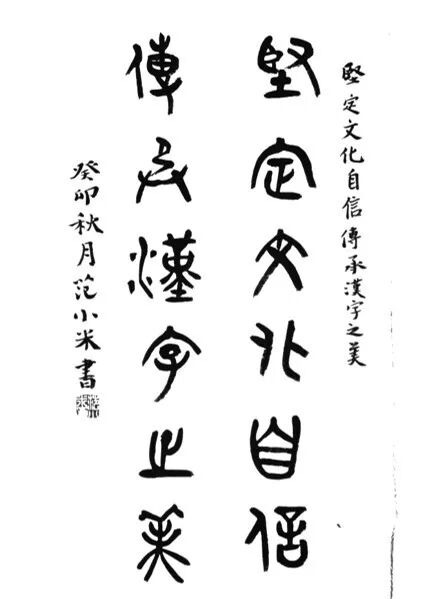 堅定文化自信傳承漢字之美
堅定文化自信
傳承漢字之美
癸卯秋月范小米書